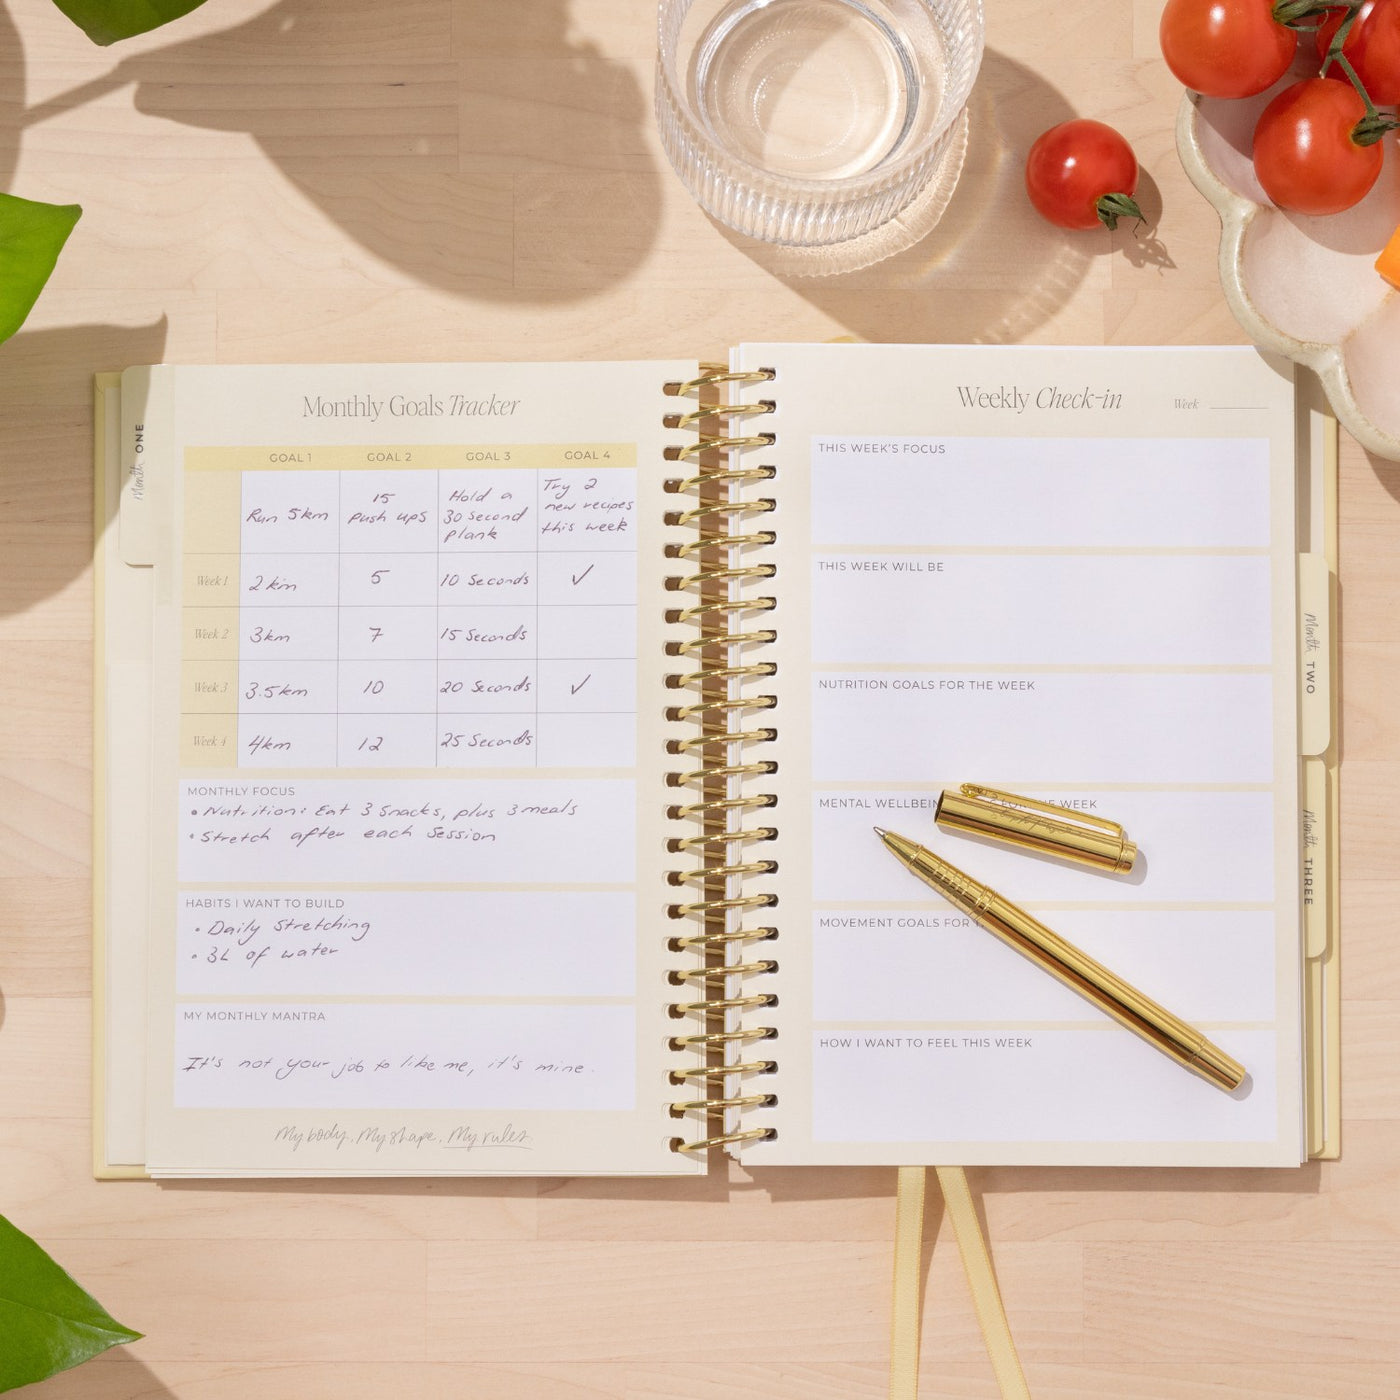 Monthly Goals Tracker
Month ONE
GOAL 1 GOAL 2 GOAL 3 GOAL 4
Run 5km
15
push ups
Hold a
30 second
plank
Try 2
new recipes
this week
Week 1 2km 5 10 Seconds ✓
Week 2 3km 7 15 Seconds
Week 3 3.5km 10 20 Seconds ✓
Week 4 4km 12 25 Seconds
MONTHLY FOCUS
• Nutrition: Eat 3 Snacks, plus 3 meals
• Stretch after each Session
HABITS I WANT TO BUILD
• Daily Stretching
• 3L of water
MY MONTHLY MANTRA
It's not your job to like me, it's mine.
My body. My shape. My rules.
Weekly Check-in
Week
THIS WEEK'S FOCUS
THIS WEEK WILL BE
NUTRITION GOALS FOR THE WEEK
MENTAL WELLBEIN WEEK
MOVEMENT GOALS FOR
HOW I WANT TO FEEL THIS WEEK
Month TWO
Month THREE